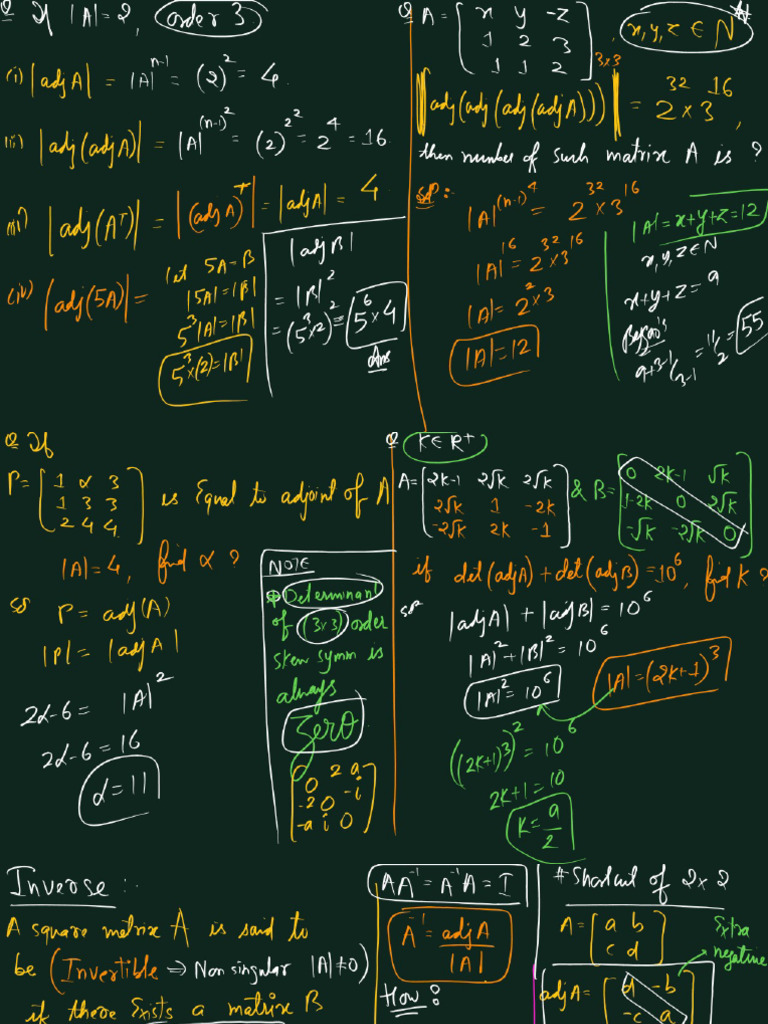 Q If |A| = 2, order 3
(i) |adj A| = |A|^{n-1} = (2)^2 = 4
(ii) |adj(adj A)| = |A|^{(n-1)^2} = (2)^{2^2} = 2^4 = 16.
(iii) |adj(A^T)| = |(adj A)^T| = |adj A| = 4
(iv) |adj(5A)| =
let 5A = B
|5A| = |B|
5^3 |A| = |B|
5^3 × (2) = |B|
|adj B|
= |B|^2
= (5^3 × 2)^2 = 5^6 × 4
Ans
Q A = [ x y -z
1 2 3
1 1 2 ] 3×3 , x, y, z ∈ N
|adj(adj(adj(adj A)))| = 2^{32} × 3^{16},
then number of such matrix A is ?
|A|^{(n-1)^4} = 2^{32} × 3^{16}
|A|^{16} = 2^{32} × 3^{16}
|A| = 2^2 × 3
|A| = 12
|A| = x+y+z = 12
x, y, z ∈ N
x+y+z = 9
9+3-1/3-1 = 11/2 = 55
Q If
P = [ 1 α 3
1 3 3
2 4 4 ] is Equal to adjoint of A
|A| = 4, find α ?
P = adj(A)
|P| = |adj A|
2α-6 = |A|^2
2α-6 = 16
α = 11
NOTE
Determinant
of (3×3) order
skew symm is
always
zero
[ 0 2 a
-2 0 -i
-a i 0 ]
Q K ∈ R+
A = [ 2K-1 2√K 2√K
2√K 1 -2K
-2√K 2K -1 ] & B = [ 0 2K-1 √K
1-2K 0 2√K
-√K -2√K 0 ]
if det(adj A) + det(adj B) = 10^6, find K ?
|adj A| + |adj B| = 10^6
|A|^2 + |B|^2 = 10^6
|A|^2 = 10^6
|A| = (2K+1)^3
((2K+1)^3)^2 = 10^6
2K+1 = 10
K = 9/2
Inverse :-
A square matrix A is said to
be (Invertible ⇒ Non singular |A| ≠ 0)
if there Exists a matrix B
AA^{-1} = A^{-1}A = I
A^{-1} = adj A / |A|
How :
# Shortcut of 2×2
A = [ a b
c d ]
Extra
negative
adj A = [ d -b
-c a ]